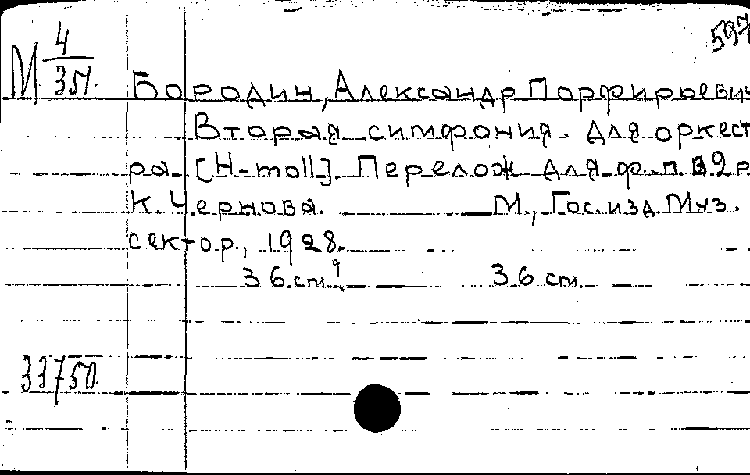 М 4/351.
Бородин, Александр Порфирьевич
Вторая симфония. Для оркест
ра. [H-moll]. Перелож для ф.п. в 2 р
К. Чернова. М., Гос. изд Муз.
сектор, 1928.
36 cm 36 cm
33750